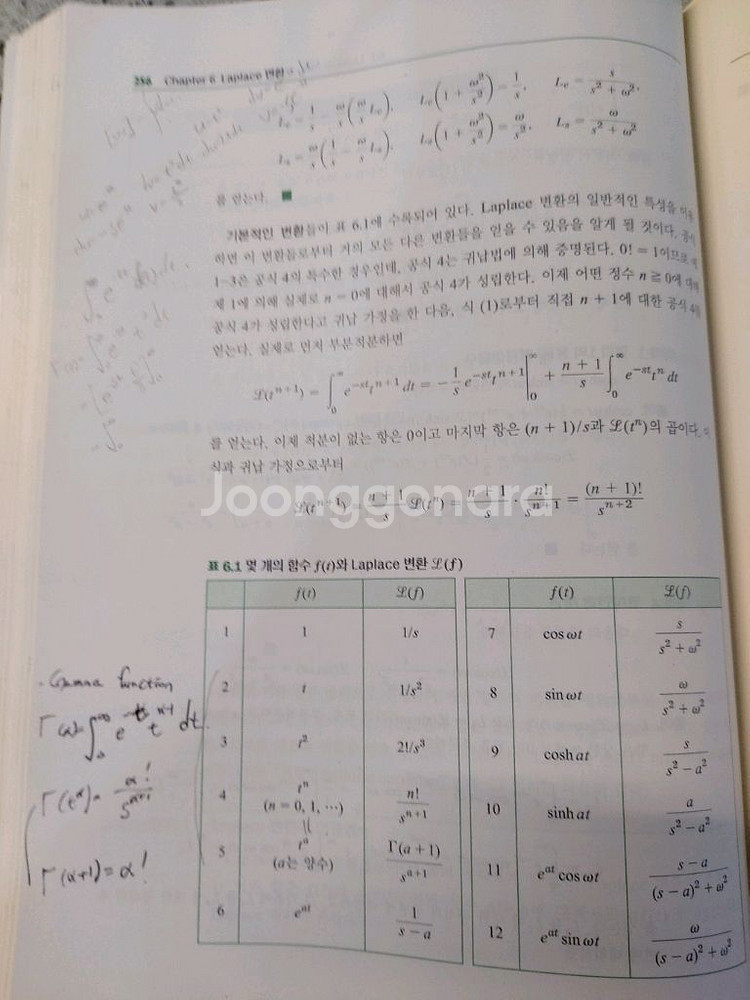 286 Chapter 6 Laplace 변환
L_c = 1/s − ω/s (ω/s L_c), L_c(1 + ω²/s²) = 1/s, L_c = s/(s² + ω²),
L_s = ω/s (1/s − ω/s L_s), L_s(1 + ω²/s²) = ω/s², L_s = ω/(s² + ω²)
를 얻는다. ■
기본적인 변환들이 표 6.1에 수록되어 있다. Laplace 변환의 일반적인 특성을
하면 이 변환들로부터 거의 모든 다른 변환들을 얻을 수 있음을 알게 될 것이다.
1–3은 공식 4의 특수한 경우인데, 공식 4는 귀납법에 의해 증명된다. 0! = 1이므로
제 1에 의해 실제로 n = 0에 대해서 공식 4가 성립한다. 이제 어떤 정수 n ≧ 0에
공식 4가 성립한다고 귀납 가정을 한 다음, 식 (1)로부터 직접 n + 1에 대한 공식
얻는다. 실제로 먼저 부분적분하면
ℒ(tⁿ⁺¹) = ∫₀^∞ e^−st tⁿ⁺¹ dt = −1/s e^−st tⁿ⁺¹ |₀^∞ + (n + 1)/s ∫₀^∞ e^−st tⁿ dt
를 얻는다. 이제 적분이 없는 항은 0이고 마지막 항은 (n + 1)/s과 ℒ(tⁿ)의 곱이다.
식과 귀납 가정으로부터
ℒ(tⁿ⁺¹) = (n + 1)/s ℒ(tⁿ) = (n + 1)/s · n!/sⁿ⁺¹ = (n + 1)!/sⁿ⁺²
Joonggonara
표 6.1 몇 개의 함수 f(t)와 Laplace 변환 ℒ(f)
f(t) ℒ(f) f(t) ℒ(f)
1 1 1/s 7 cos ωt s/(s² + ω²)
2 t 1/s² 8 sin ωt ω/(s² + ω²)
3 t² 2!/s³ 9 cosh at s/(s² − a²)
4 tⁿ (n = 0, 1, ⋯) n!/sⁿ⁺¹ 10 sinh at a/(s² − a²)
5 tᵃ (a는 양수) Γ(a + 1)/sᵃ⁺¹ 11 eᵃᵗ cos ωt (s − a)/((s − a)² + ω²)
6 eᵃᵗ 1/(s − a) 12 eᵃᵗ sin ωt ω/((s − a)² + ω²)
Gamma function
Γ(α) = ∫₀^∞ e^−t t^α-1 dt
Γ(t^α) = α!/s^α+1
Γ(α+1) = α!